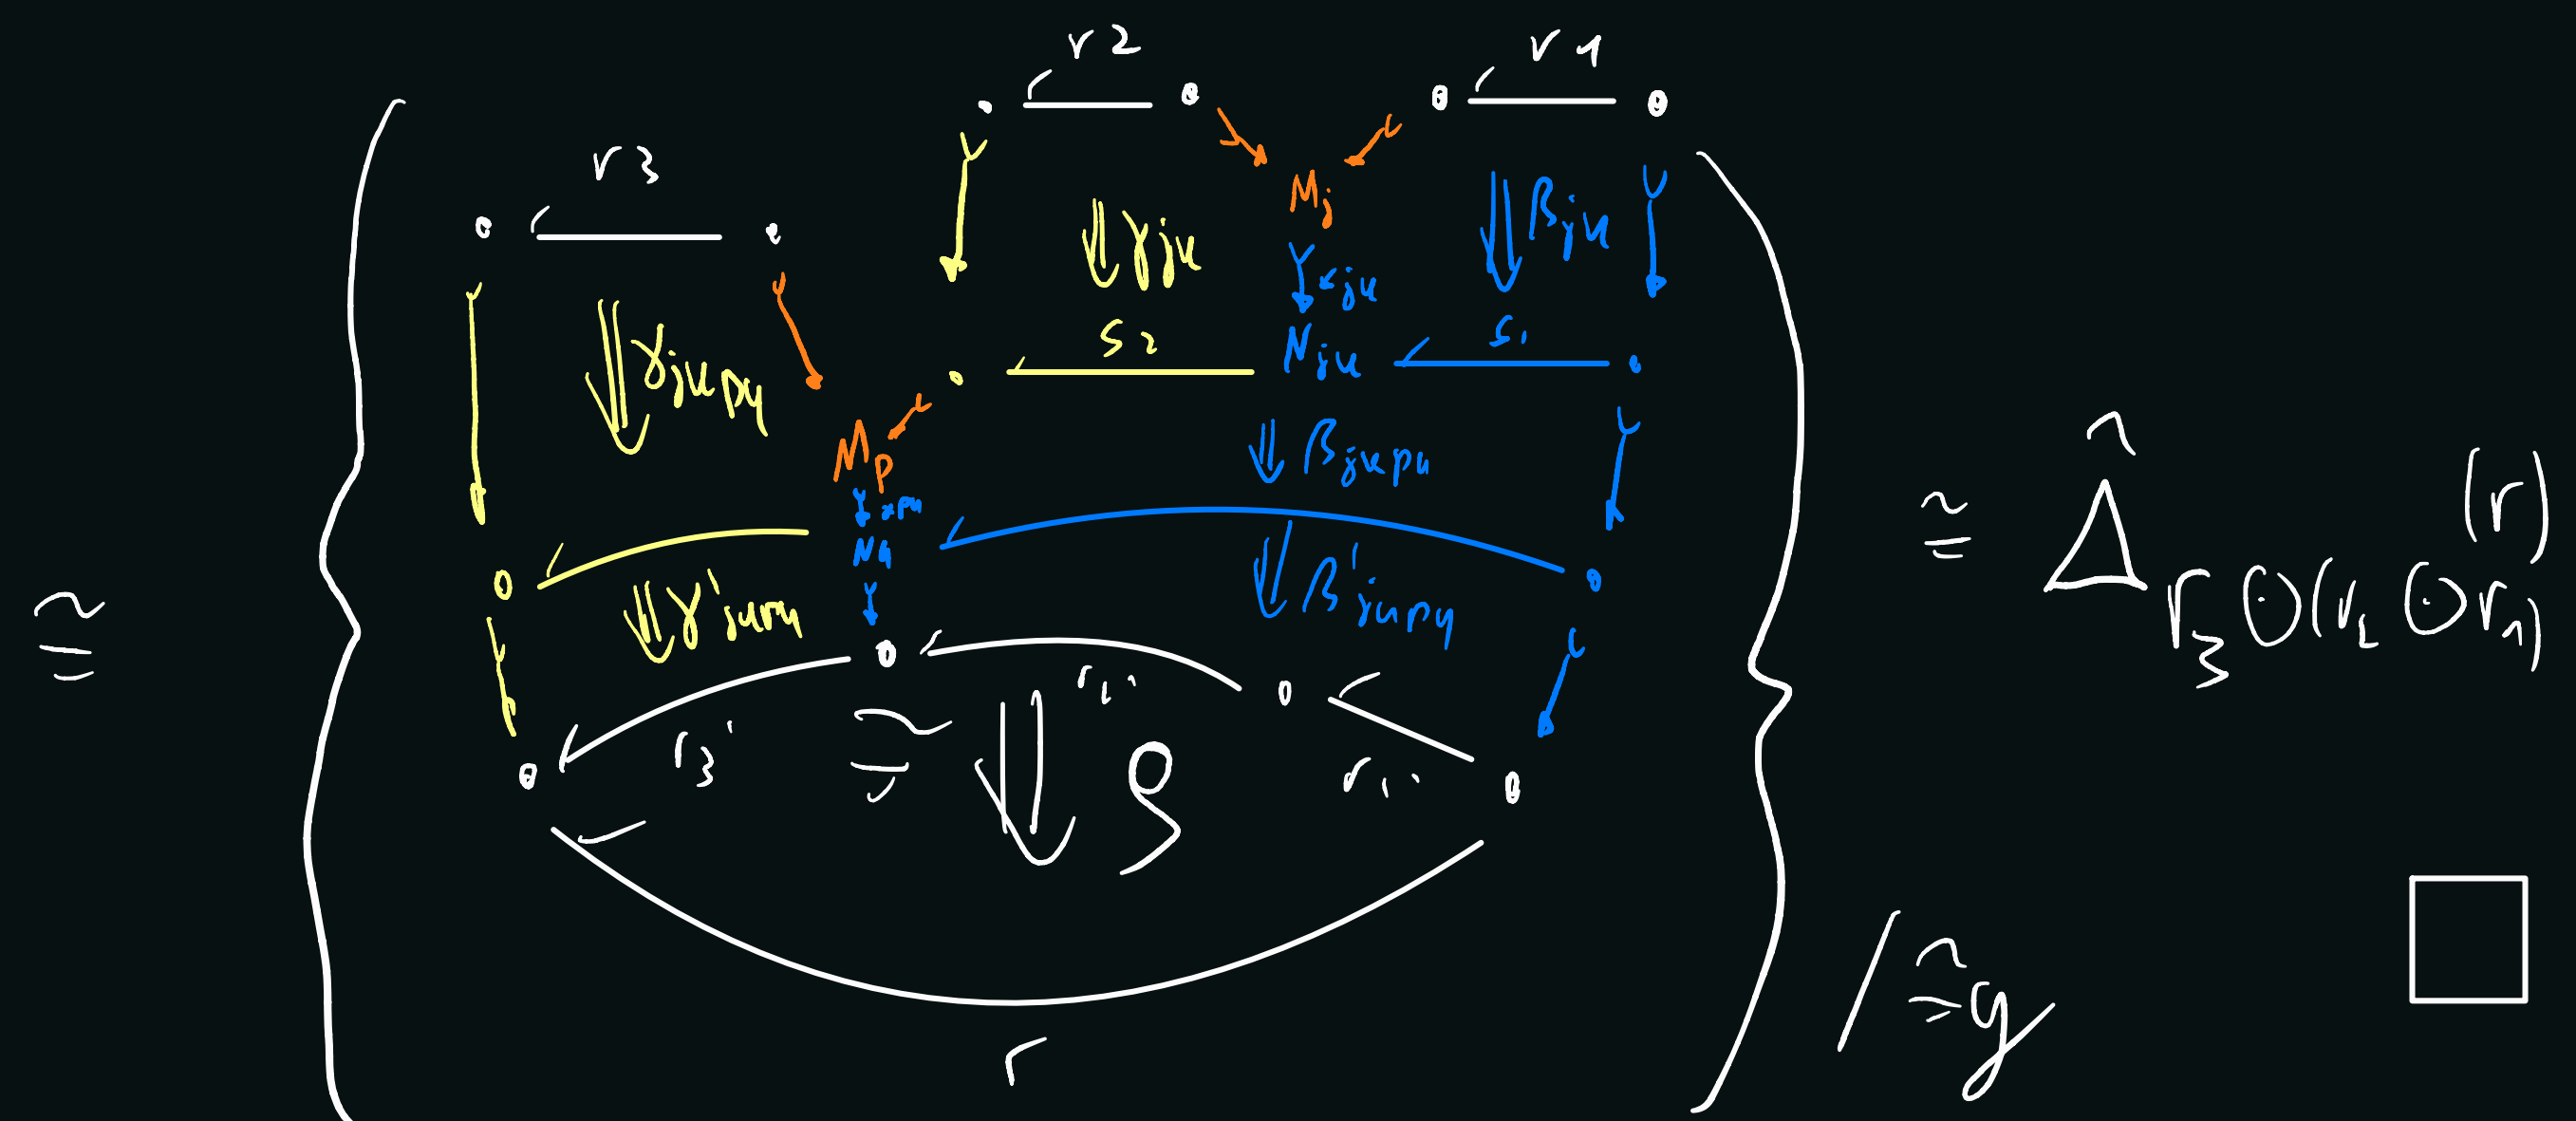 r2 r1
r3
M_j
γ_jk β_jk
x_jk
s_2 N_jk s_1
γ_jkpq
M_p β_jkpq
x_pq
N_q
γ'_jkpq β'_jkpq
≅ ≅ Δ̂_{r_3 ⊙ (r_2 ⊙ r_1)} (r)
r_3' ≅ ρ r_2' r_1'
r
/ ≅ y